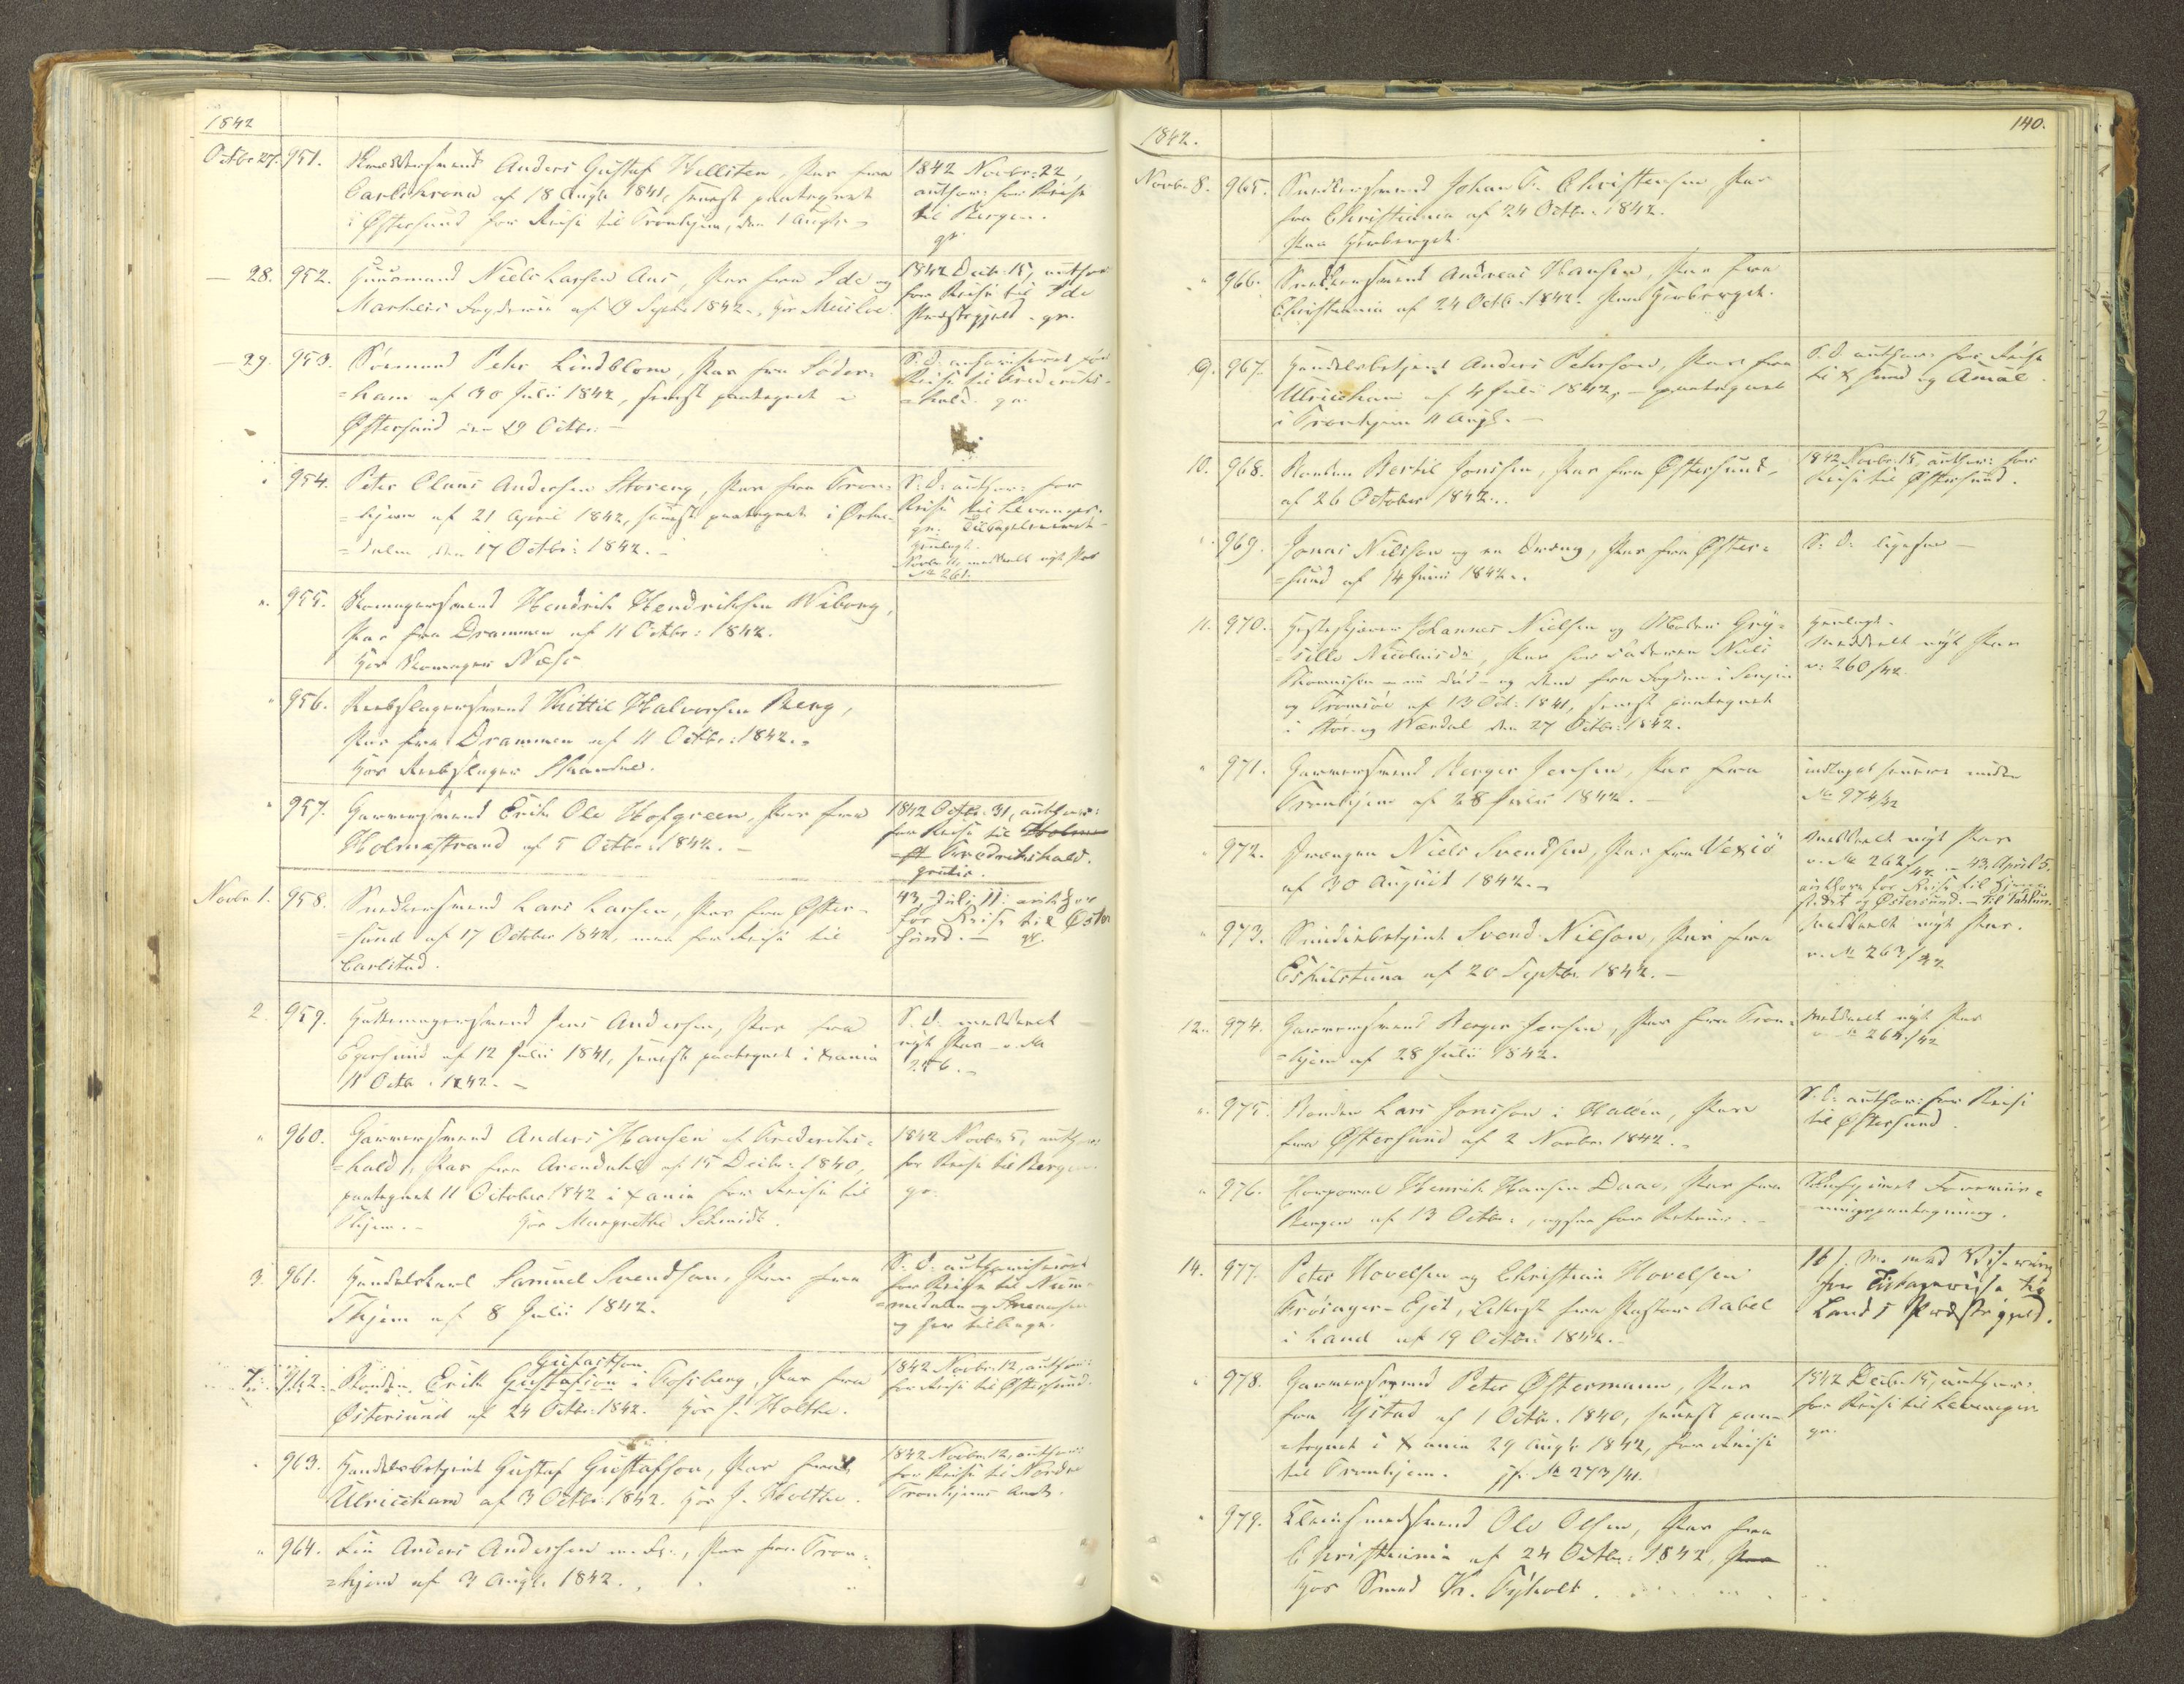 1842
Octbr 27. 951. Skræddersvend Anders Gustaf Hellsten, Pas fra
Carlskrona af 18 Augst 1841, senest paategnet
i Østersund for Reise til Tronhjem, den 1 Augst
1842 Novbr: 22,
author: for Reise
til Bergen.
gr.
— 28. 952. Huusmand Niels Larsen Aas, Pas fra Ide og
Markers Fogderie af 9 Septbr 1842.,
1842 Decbr. 15, author
for Reise til Ide
Præstegjeld. gr.
— 29. 953. Sømand Pehr Lindblom, Pas fra Söder-
=ham af 30 Julii 1842, senest paategnet i
Østersund den 29 Octbr. —
S: D: authoriseret for
Reise til Frederiks-
=hald. gr.
954. Peter Claus Andersen Storeng, Pas fra Tron-
=hjem af 21 April 1842, senest paategnet i Ørke-
=dalen den 17 Octbr: 1842. —
S: D: author: for
Reise til Levanger.
gr. Tilbagekommet
henlagt.
Novbr 11, meddeelt nyt Pas
No 261.
". 955. Skomagersvend Hendrik Hendriksen Wiborg,
Pas fra Drammen af 11 Octbr: 1842.
hos Skomager Næss
" 956. Rebslagersvend Kittil Halvorsen Berg,
Pas fra Drammen af 11 Octbr: 1842.
hos Rebslager
" 957. Garversvend Erik Ole Hofgreen, Pas fra
Holmestrand af 5 Octbr: 1842. —
1842 Octbr. 31, author:
for Reise til Holme
=st Fredrikshald.
gratis.
Novbr 1. 958. Snedkersvend Lars Larsen, Pas fra Øster-
=sund af 17 October 1842, men for Reise til
Carlstad.
43, Juli 11: author
for Reise til Øster
sund. — gr.
2. 959. Hattemagersvend Jens Andersen, Pas fra
Egersund af 12 Julii 1841, senest paategnet i Xania
11 Octbr. 1842. —
S. D. meddeelt
nyt Pas
256. —
" 960. Garversvend Anders Hansen af Frederiks-
=hald, Pas fra Arendahl af 15 Decbr: 1840,
paategnet 11 October 1842 i Xania for Reise til
Thjem. — hos Margrethe Schmidt.
1842 Novbr 5, author:
for Reise til Bergen.
gr.
3. 961. Handelskarl Samuel Svendsen, Pas fra
Thjem af 8 Julii 1842.
S: D: authoriseret
for Reise til Num-
=medalen og
og her tilbage.
7. 962. Bonden Erik Gustafson i Kossberg, Pas fra
Gustafson
Östersund af 24 Octbr: 1842. hos J. Holthe.
1842 Novbr. 12, author:
for Reise til Østersund.
" 963. Handelsbetjent Gustaf Gustafson, Pas fra
Ulricehamn af 3 Octbr: 1842. hos J. Holthe.
1842 Novbr. 12, author:
for Reise til Nordre
Tronhjems Amt.
" 964. Fin Anders Andersen m. fl., Pas fra Tron-
=hjem af 3 Augst 1842.
140.
1842.
Novbr 8. 965. Snedkersvend Johan Fr. Christensen, Pas
fra Christiania af 24 Octbr: 1842.
paa Herberget.
" 966. Snedkersvend Andreas Hansen, Pas fra
Christiania af 24 Octbr 1842. paa Herberget.
9. 967. Handelsbetjent Anders Pehrson, Pas fra
Ulricehamn af 4 Juli 1842, — paategnet
i Tronhjem 11 Augst. —
S: D author: for Reise
til X sund og Åmål.
10. 968. Bonden Bertil Jonssen, Pas fra Østersund,
af 26 October 1842.
1842 Novbr. 15, author: for
Reise til Østersund.
969. Jonas Nilsson og en Dreng, Pas fra Øster-
=sund af 14 Juni 1842.
S: D: ligesaa —
11. 970. Johannes Nielsen og Moder Gry-
=sille Nicolaisdr, Pas for Faderen Niels
Thomassen — nu død — og dem fra Fogden i Senjen
og Tromsöe af 13 Oct: 1841, senest paategnet
i Stør- og Værdal den 27 Octbr: 1842.
Henlagt.
meddeelt nyt Pas
v: 260/42.
" 971. Garversvend Berger Jensen, Pas fra
Tronhjem af 28 Julii 1842. —
indtaget senere under
No 974/42
" 972. Drengen Niels Svendsen, Pas fra Vexiö
af 30 August 1842. —
Meddeelt nyt Pas
v. No 262/42. — 43, April 5.
author for Reise til Hjem-
stedet og Östersund. — Til Fahlun.
" 973. Smidesbetjent Svend Nilson, Pas fra
Eskilstuna af 20 Septbr. 1842. —
Meddeelt nyt Pas.
v. No 263/42
12. 974. Garversvend Berger Jensen, Pas fra Tron-
=hjem af 28 Julii 1842.
Meddeelt nyt Pas
v. No 264/42
" 975. Bonden Lars Jonsson i Hallen, Pas
fra Østersund af 2 Novbr. 1842. —
S. D: author: for Reise
til Østersund.
" 976. Corporal Henrik Hansen Daae, Pas fra
Bergen af 13 Octbr:, ogsaa for Retour. —
14. 977. Peter Hovelsen og Christian Hovelsen
Frøsager-Ejet, Attest fra Pastor Aabel
i Land af 19 Octbr: 1842. —
16/. m. med Viisering
for Tilbagereise til
Lands Præstegjeld.
" 978. Garversvend Peter Østermann, Pas
fra Ystad af 1 Octbr. 1840, senest paa-
=tegnet i Xania 29 Augst 1842, for Reise
til Tronhjem. jf. No 273/41.
1842 Decbr 15, author:
for Reise til Levanger
gr.
" 979. Kleinsmedsvend Ole Olsen, Pas fra
Christiania af 24 Octbr: 1842,
hos Smed Kr. Fyholt.